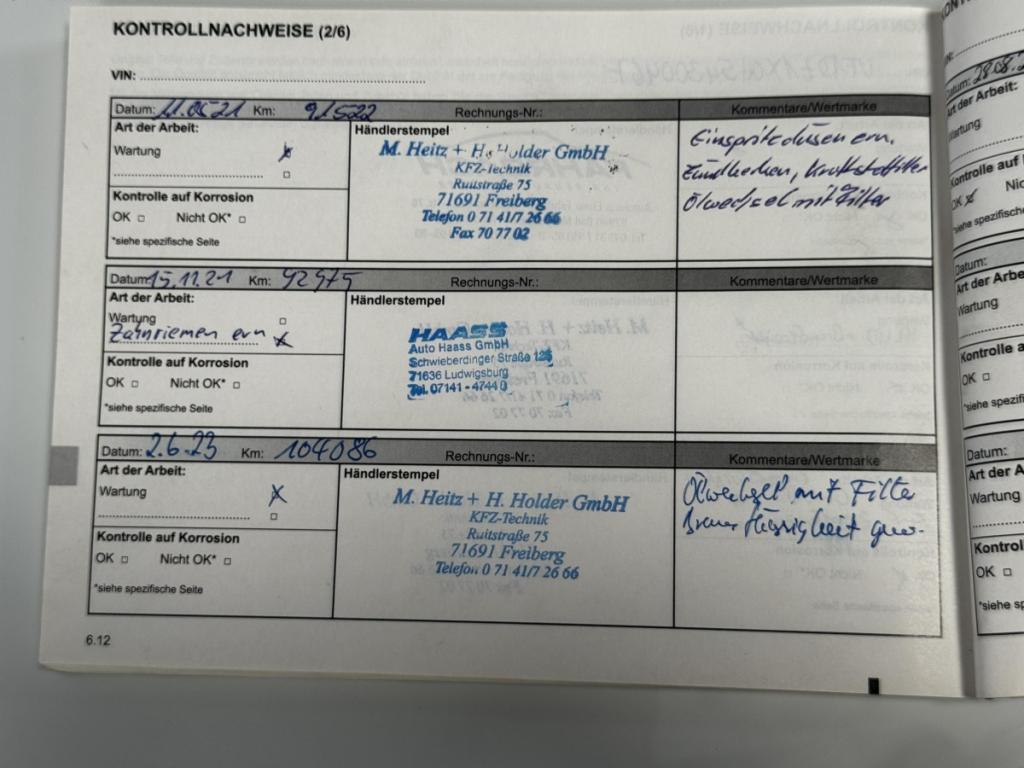 KONTROLLNACHWEISE (2/6)
VIN:
Datum: 11.05.21 Km: 91522 Rechnungs-Nr.: Kommentare/Wertmarke
Art der Arbeit:
Wartung
Kontrolle auf Korrosion
OK Nicht OK*
*siehe spezifische Seite
Händlerstempel
M. Heitz + H. Holder GmbH
KFZ-Technik
Ruitstraße 75
71691 Freiberg
Telefon 0 71 41/7 26 66
Fax 70 77 02
Einspritzdüsen ern.
Zündkerzen, Kraftstofffilter
Ölwechsel mit Filter
Datum: 15.11.21 Km: 92975 Rechnungs-Nr.: Kommentare/Wertmarke
Art der Arbeit:
Wartung
Zahnriemen ern
Kontrolle auf Korrosion
OK Nicht OK*
*siehe spezifische Seite
Händlerstempel
HAASS
Auto Haass GmbH
Schwieberdinger Straße 125
71636 Ludwigsburg
Tel. 07141 - 4744 0
Datum: 2.6.23 Km: 104086 Rechnungs-Nr.: Kommentare/Wertmarke
Art der Arbeit:
Wartung
Kontrolle auf Korrosion
OK Nicht OK*
*siehe spezifische Seite
Händlerstempel
M. Heitz + H. Holder GmbH
KFZ-Technik
Ruitstraße 75
71691 Freiberg
Telefon 0 71 41/7 26 66
Ölwechsel mit Filter
Bremsflüssigkeit gew.
6.12
Datum: 28.08.
Art der Arbeit:
Wartung
Kontrolle auf
OK Nic
*siehe spezifische
Datum:
Art der Arbeit:
Wartung
Kontrolle a
OK
*siehe spezi
Datum:
Art der A
Wartung
Kontrol
OK
*siehe sp